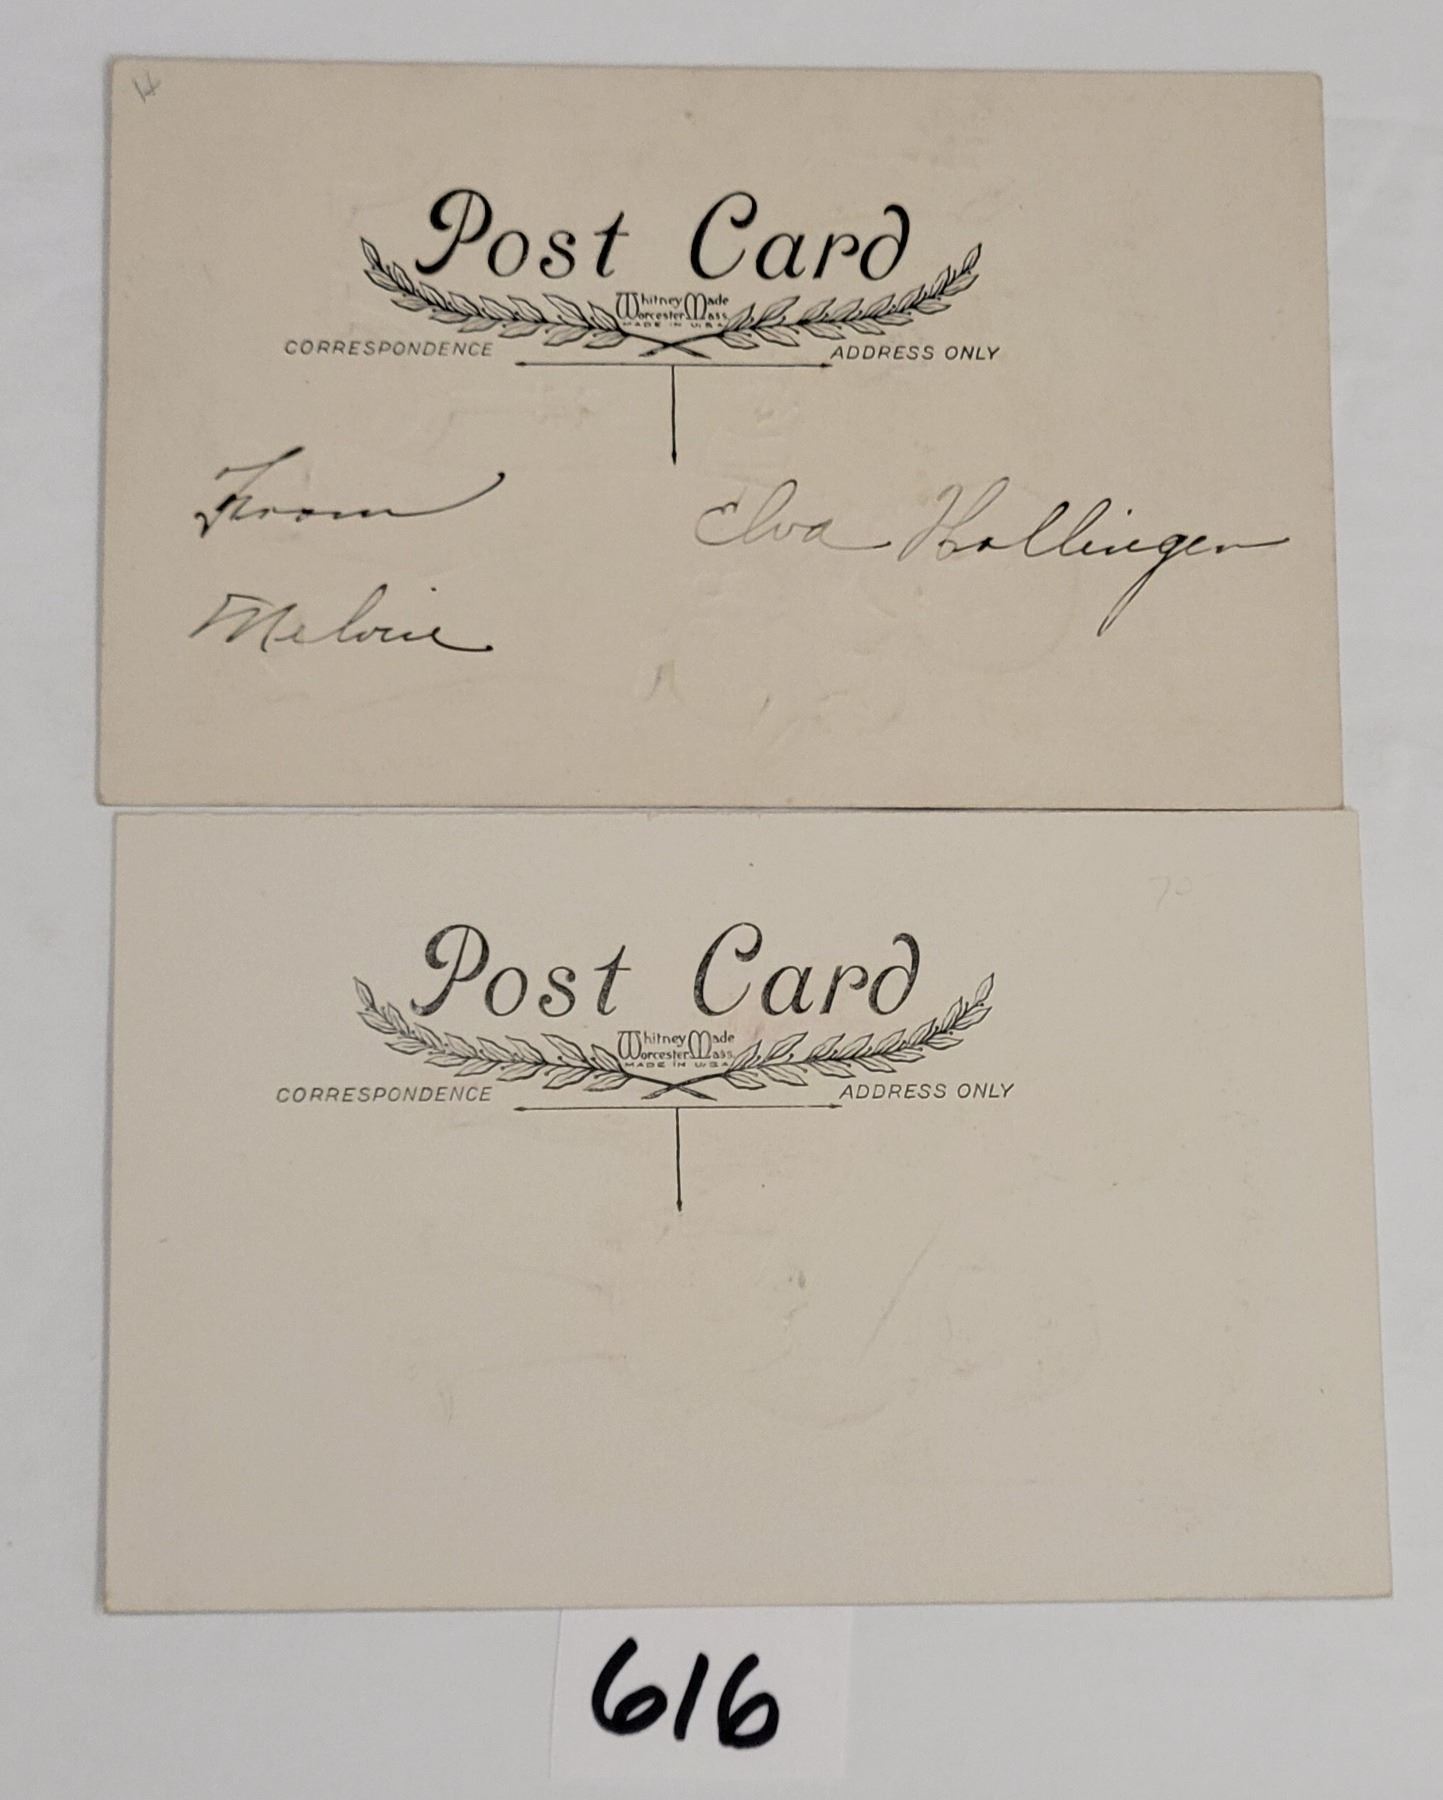 Post Card
Whitney Made
Worcester Mass.
MADE IN U.S.A.
CORRESPONDENCE
ADDRESS ONLY
From
Elva Hollinger
Melvie
Post Card
Whitney Made
Worcester Mass.
MADE IN U.S.A.
CORRESPONDENCE
ADDRESS ONLY
70
616